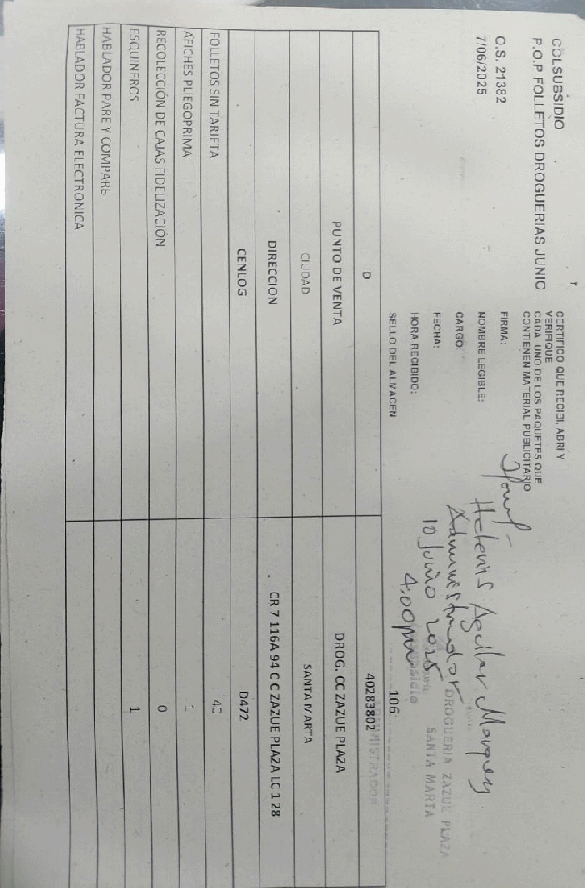 COLSUBSIDIO
P.O.P FOLLETOS DROGUERIAS JUNIO
C.S. 21382
7/06/2025
CERTIFICO QUE RECIBI, ABRI Y
VERIFIQUE
CADA UNO DE LOS PAQUETES QUE
CONTIENEN MATERIAL PUBLICITARIO
FIRMA:
NOMBRE LEGIBLE: Helenis Aguilar Marquez
CARGO: Administrador
FECHA: 10 Junio 2025
HORA RECIBIDO: 4:00pm
SELLO DEL ALMACEN
DROGUERIA ZAZUE PLAZA
SANTA MARTA
ADMINISTRADOR
106
D 40283802
PUNTO DE VENTA DROG. CC ZAZUE PLAZA
CIUDAD SANTA MARTA
DIRECCION CR 7 116A 94 C C ZAZUE PLAZA LC 1 28
CENLOG D472
FOLLETOS SIN TARIFTA
AFICHES PLIEGOPRIMA
RECOLECCIÓN DE CAJAS FIDELIZACIÓN 0
ESQUINEROS 1
HABLADOR PARE Y COMPARE
HABLADOR FACTURA ELECTRONICA